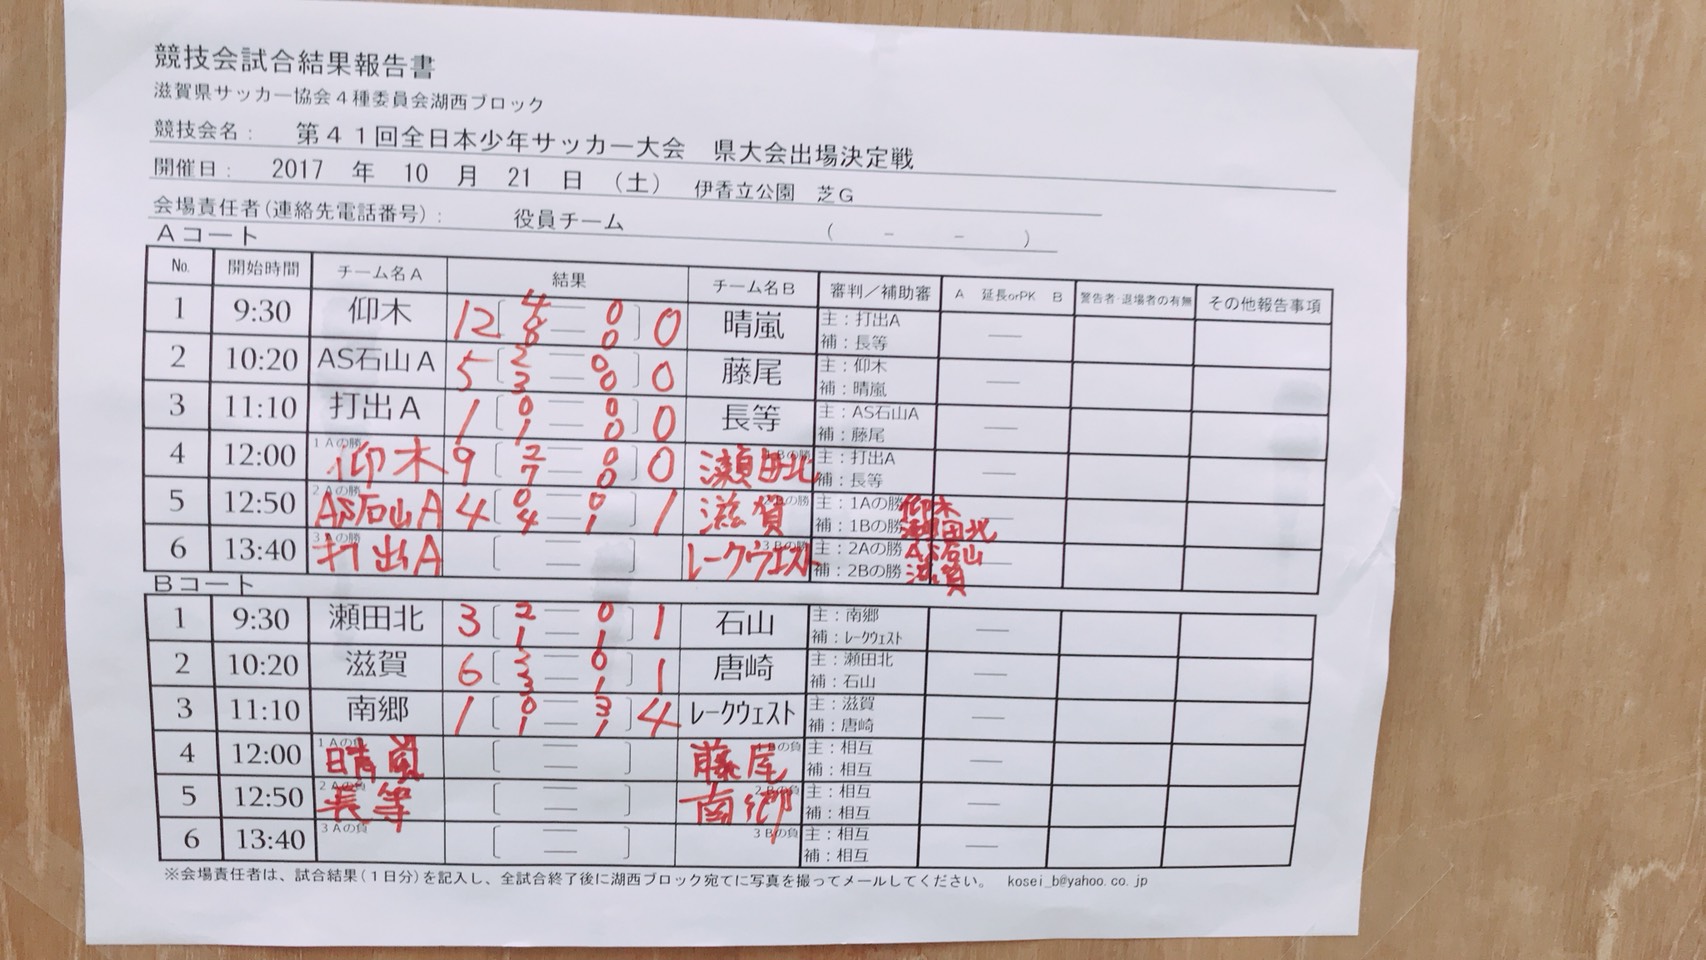 競技会試合結果報告書
滋賀県サッカー協会4種委員会湖西ブロック
競技会名： 第41回全日本少年サッカー大会 県大会出場決定戦
開催日： 2017 年 10 月 21 日 （土） 伊香立公園 芝G
会場責任者(連絡先電話番号)： 役員チーム ( - - )
Aコート
No. 開始時間 チーム名A 結果 チーム名B 審判／補助審 A 延長orPK B 警告者・退場者の有無 その他報告事項
1 9:30 仰木 12 [ 4 — 0 ] 0 晴嵐 主：打出A —
8 — 0 補：長等
2 10:20 AS石山A 5 [ 2 — 0 ] 0 藤尾 主：仰木 —
3 — 0 補：晴嵐
3 11:10 打出A 1 [ 0 — 0 ] 0 長等 主：AS石山A —
1 — 0 補：藤尾
4 12:00 1Aの勝 仰木 9 [ 2 — 0 ] 0 瀬田北 1Bの勝 主：打出A —
7 — 0 補：長等
5 12:50 2Aの勝 AS石山A 4 [ 0 — 0 ] 1 滋賀 2Bの勝 主：1Aの勝 仰木 —
4 — 1 補：1Bの勝 瀬田北
6 13:40 3Aの勝 打出A [ — ] レークウエスト 3Bの勝 主：2Aの勝 AS石山 —
— 補：2Bの勝 滋賀
Bコート
1 9:30 瀬田北 3 [ 2 — 0 ] 1 石山 主：南郷 —
1 — 1 補：レークウェスト
2 10:20 滋賀 6 [ 3 — 0 ] 1 唐崎 主：瀬田北 —
3 — 1 補：石山
3 11:10 南郷 1 [ 0 — 3 ] 4 レークウェスト 主：滋賀 —
1 — 1 補：唐崎
4 12:00 1Aの負 晴嵐 [ — ] 藤尾 1Bの負 主：相互 —
— 補：相互
5 12:50 2Aの負 長等 [ — ] 南郷 2Bの負 主：相互 —
— 補：相互
6 13:40 3Aの負 [ — ] 3Bの負 主：相互 —
— 補：相互
※会場責任者は、試合結果(1日分)を記入し、全試合終了後に湖西ブロック宛てに写真を撮ってメールしてください。 kosei_b@yahoo.co.jp